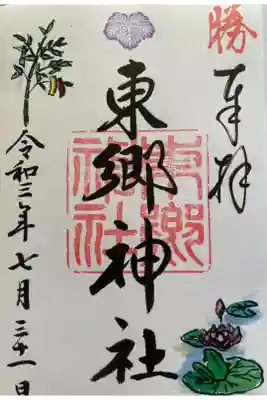 勝
奉拝
東郷神社
東郷神社
令和三年七月三十一日